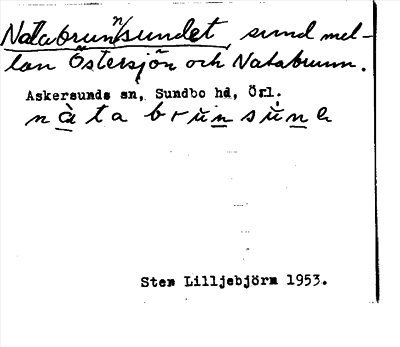 Natabrunnsundet, sund mel-
lan Östersjön och Natabrunn.
Askersunds sn, Sundbo hd, Örl.
nàta brùnsùnе
Sten Lilljebjörn 1953.